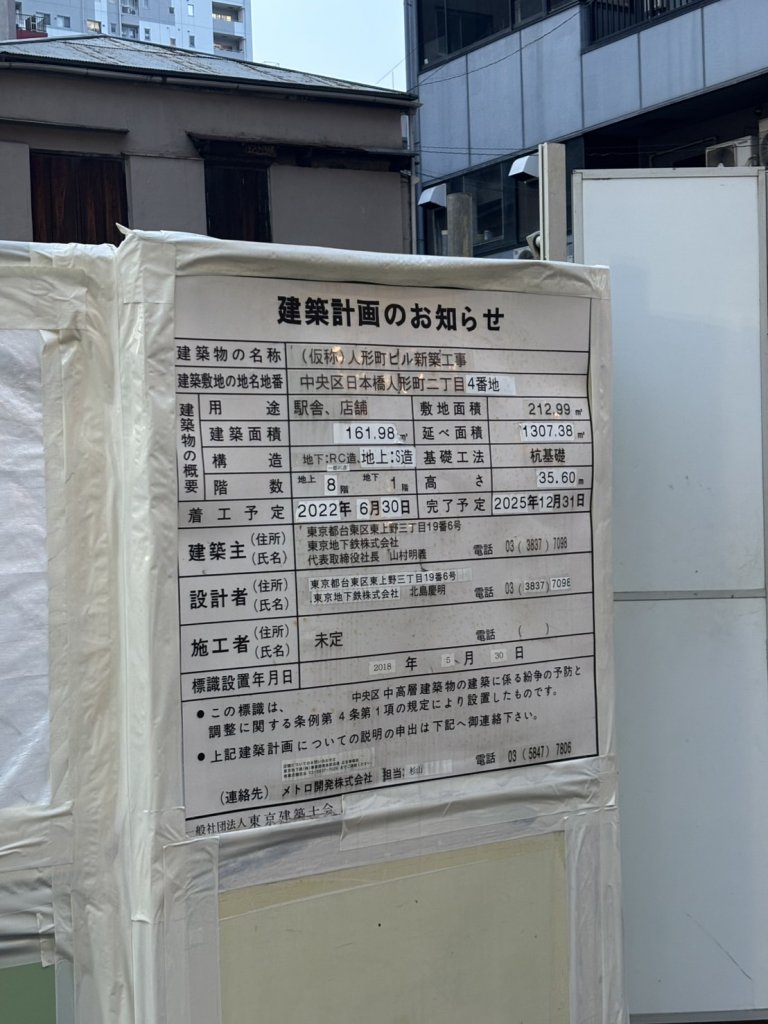 建築計画のお知らせ
建築物の名称 (仮称)人形町ビル新築工事
建築敷地の地名地番 中央区日本橋人形町二丁目4番地
建築物の概要
用途 駅舎、店舗 敷地面積 212.99㎡
建築面積 161.98㎡ 延べ面積 1307.38㎡
構造 地下:RC造、地上:S造 基礎工法 杭基礎
階数 地上8階 地下1階 高さ 35.60m
着工予定 2022年 6月30日 完了予定 2025年12月31日
建築主 (住所) 東京都台東区東上野三丁目19番6号
(氏名) 東京地下鉄株式会社
代表取締役社長 山村明義 電話 03(3837)7098
設計者 (住所) 東京都台東区東上野三丁目19番6号
(氏名) 東京地下鉄株式会社 北島慶明 電話 03(3837)7098
施工者 (住所)(氏名) 未定 電話 ( )
標識設置年月日 2018年 5月 30日
●この標識は、中央区中高層建築物の建築に係る紛争の予防と
調整に関する条例第4条第1項の規定により設置したものです。
●上記建築計画についての説明の申出は下記へ御連絡下さい。
(連絡先) メトロ開発株式会社 担当:杉山 電話 03(5847)7806
一般社団法人東京建築士会